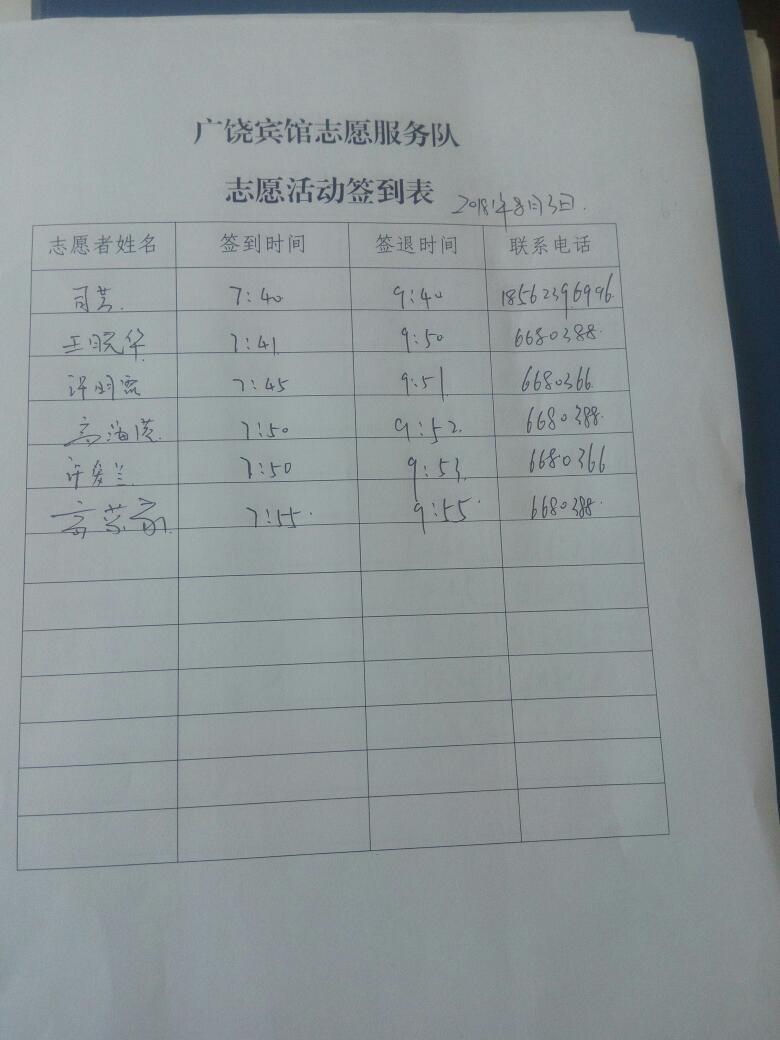 广饶宾馆志愿服务队
志愿活动签到表 2018年8月3日.
志愿者姓名 签到时间 签退时间 联系电话
司芸. 7:40 9:40 18562396996.
王晓华. 7:41. 9:50 6680388.
许明霞 7:45 9:51. 6680366.
高海滨. 7:50 9:52. 6680388.
许爱兰 7:50 9:53. 6680366
7:55. 9:55. 6680388.